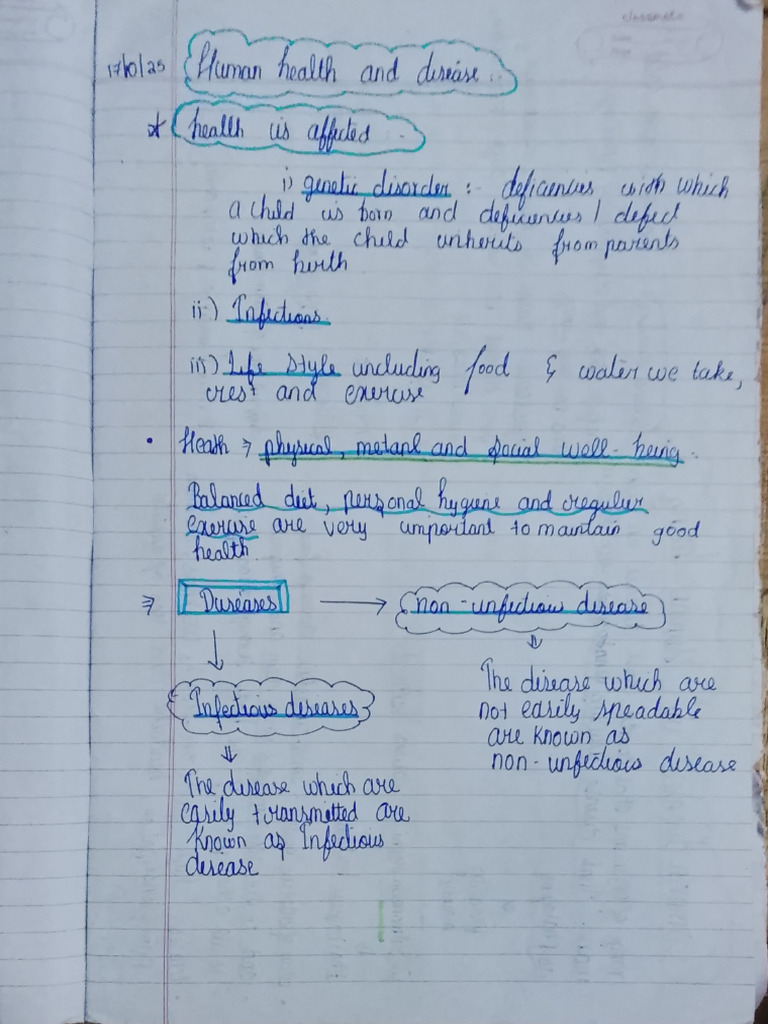 classmate
17/10/25 Human health and disease
* health is affected
i) genetic disorder :- deficiencies with which
a child is born and deficiencies / defect
which the child inherits from parents
from birth
ii) Infections
iii) Life Style including food & water we take,
rest and exercise
• Health → physical, metanl and social well-being.
Balanced diet, personal hygiene and regular
exercise are very important to maintain good
health.
⇒ Diseases → non-infectious disease
Infectious diseases
The disease which are
not easily speadable
are known as
non-infectious disease
The disease which are
easily transmitted are
known as Infectious
disease